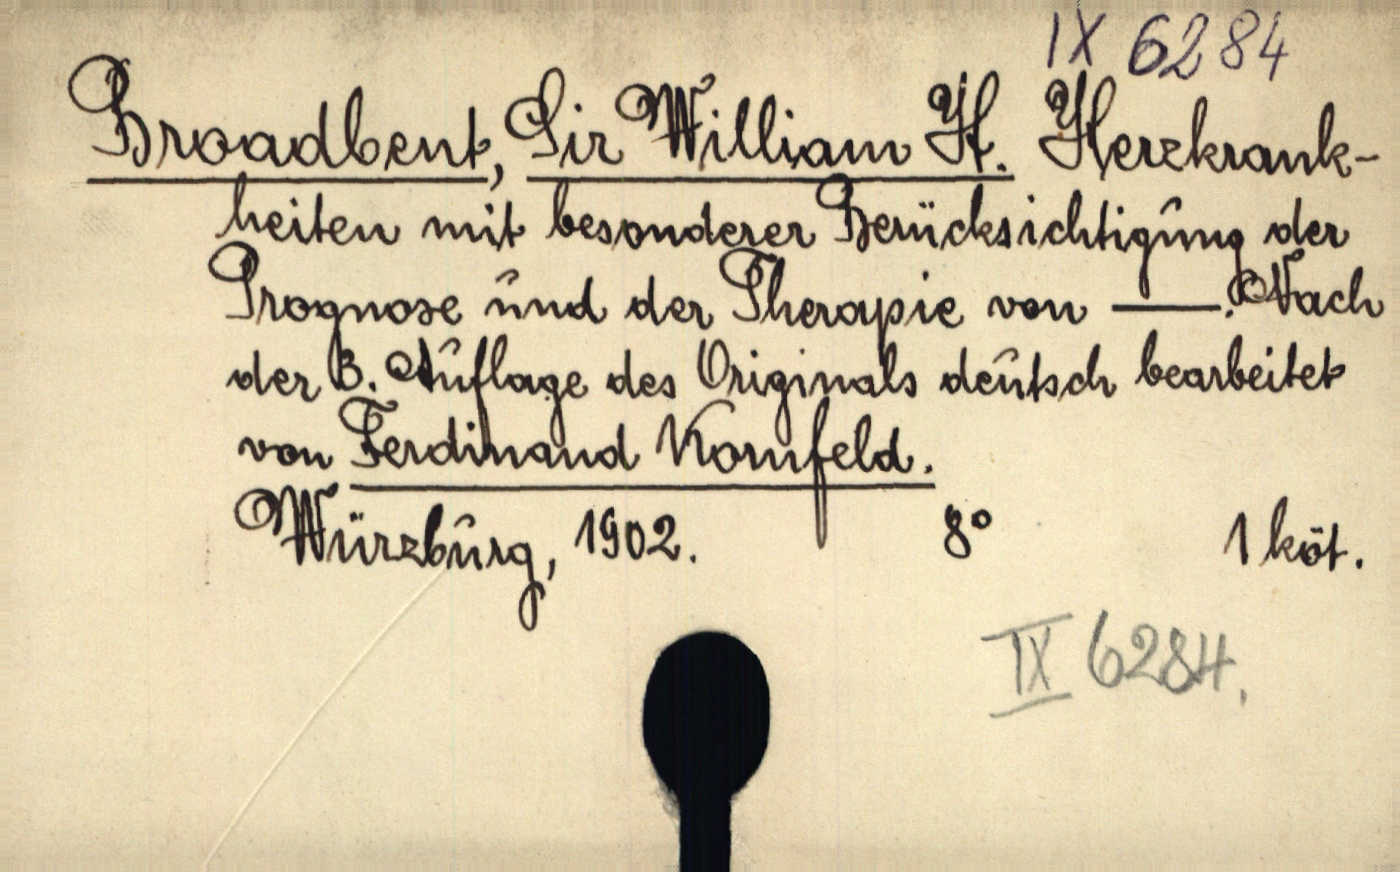 IX 6284
Broadbent, Sir William H. Herzkrank-
heiten mit besonderer Berücksichtigung der
Prognose und der Therapie von ——. Nach
der 3. Auflage des Originals deutsch bearbeitet
von Ferdinand Kornfeld.
Würzburg, 1902. 8° 1 köt.
IX 6284.